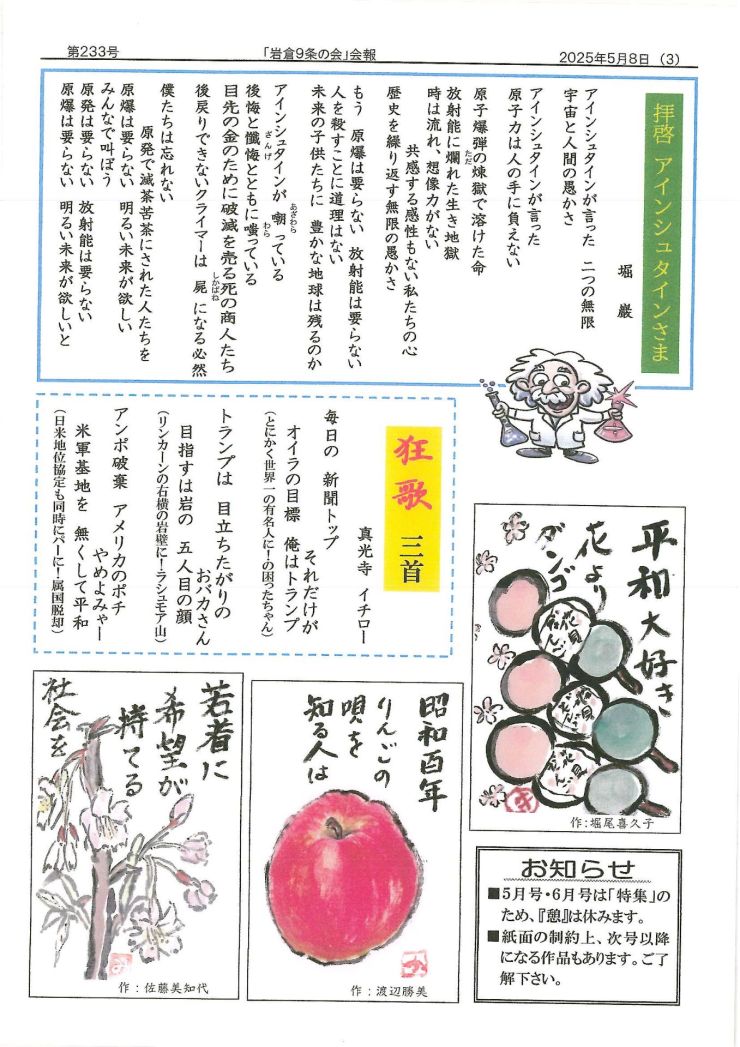 第233号
「岩倉9条の会」会報
2025年5月8日（3）
拝啓 アインシュタインさま
堀 巌
アインシュタインが言った 二つの無限
宇宙と人間の愚かさ
アインシュタインが言った
原子力は人の手に負えない
原子爆弾の煉獄で溶けた命
放射能に爛れた生き地獄
ただ
時は流れ、想像力がない
共感する感性もない私たちの心
歴史を繰り返す無限の愚かさ
もう 原爆は要らない 放射能は要らない
人を殺すことに道理はない
未来の子供たちに 豊かな地球は残るのか
アインシュタインが 嘲っている
あざわら
後悔と懺悔とともに嗤っている
ざんげ
わら
目先の金のために破滅を売る死の商人たち
後戻りできないクライマーは 屍 になる必然
しかばね
僕たちは忘れない
原発で滅茶苦茶にされた人たちを
原爆は要らない 明るい未来が欲しい
みんなで叫ぼう
原発は要らない 放射能は要らない
原爆は要らない 明るい未来が欲しいと
狂歌 三首
真光寺 イチロー
毎日の 新聞トップ
それだけが
オイラの目標 俺はトランプ
（とにかく世界一の有名人に！の困ったちゃん）
トランプは 目立ちたがりの
おバカさん
目指すは岩の 五人目の顔
（リンカーンの右横の岩壁に！ラシュモア山）
アンポ破棄 アメリカのポチ
やめよみゃー
米軍基地を 無くして平和
（日米地位協定も同時にパーに！属国脱却）
平和大好き
花より
ダンゴ
花見
だんご
花見
だんご
花見
だんご
作：堀尾喜久子
昭和百年
りんごの
唄を
知る人は
作：渡辺勝美
若者に
希望が
持てる
社会を
作：佐藤美知代
お知らせ
■5月号・6月号は「特集」の
ため、『憩』は休みます。
■紙面の制約上、次号以降
になる作品もあります。ご了
解下さい。